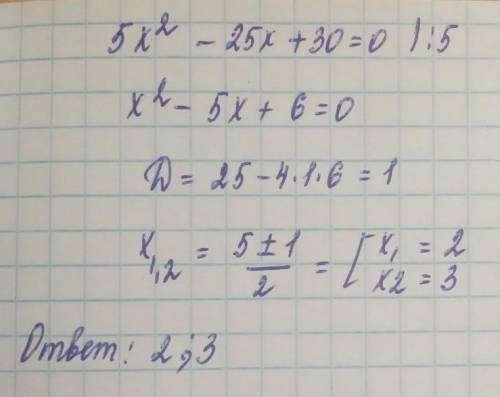 5x² - 25x + 30 = 0 | :5
x² - 5x + 6 = 0
D = 25 - 4·1·6 = 1
x₁,₂ = (5 ± 1)/2 = [ x₁ = 2
x2 = 3
Ответ: 2; 3